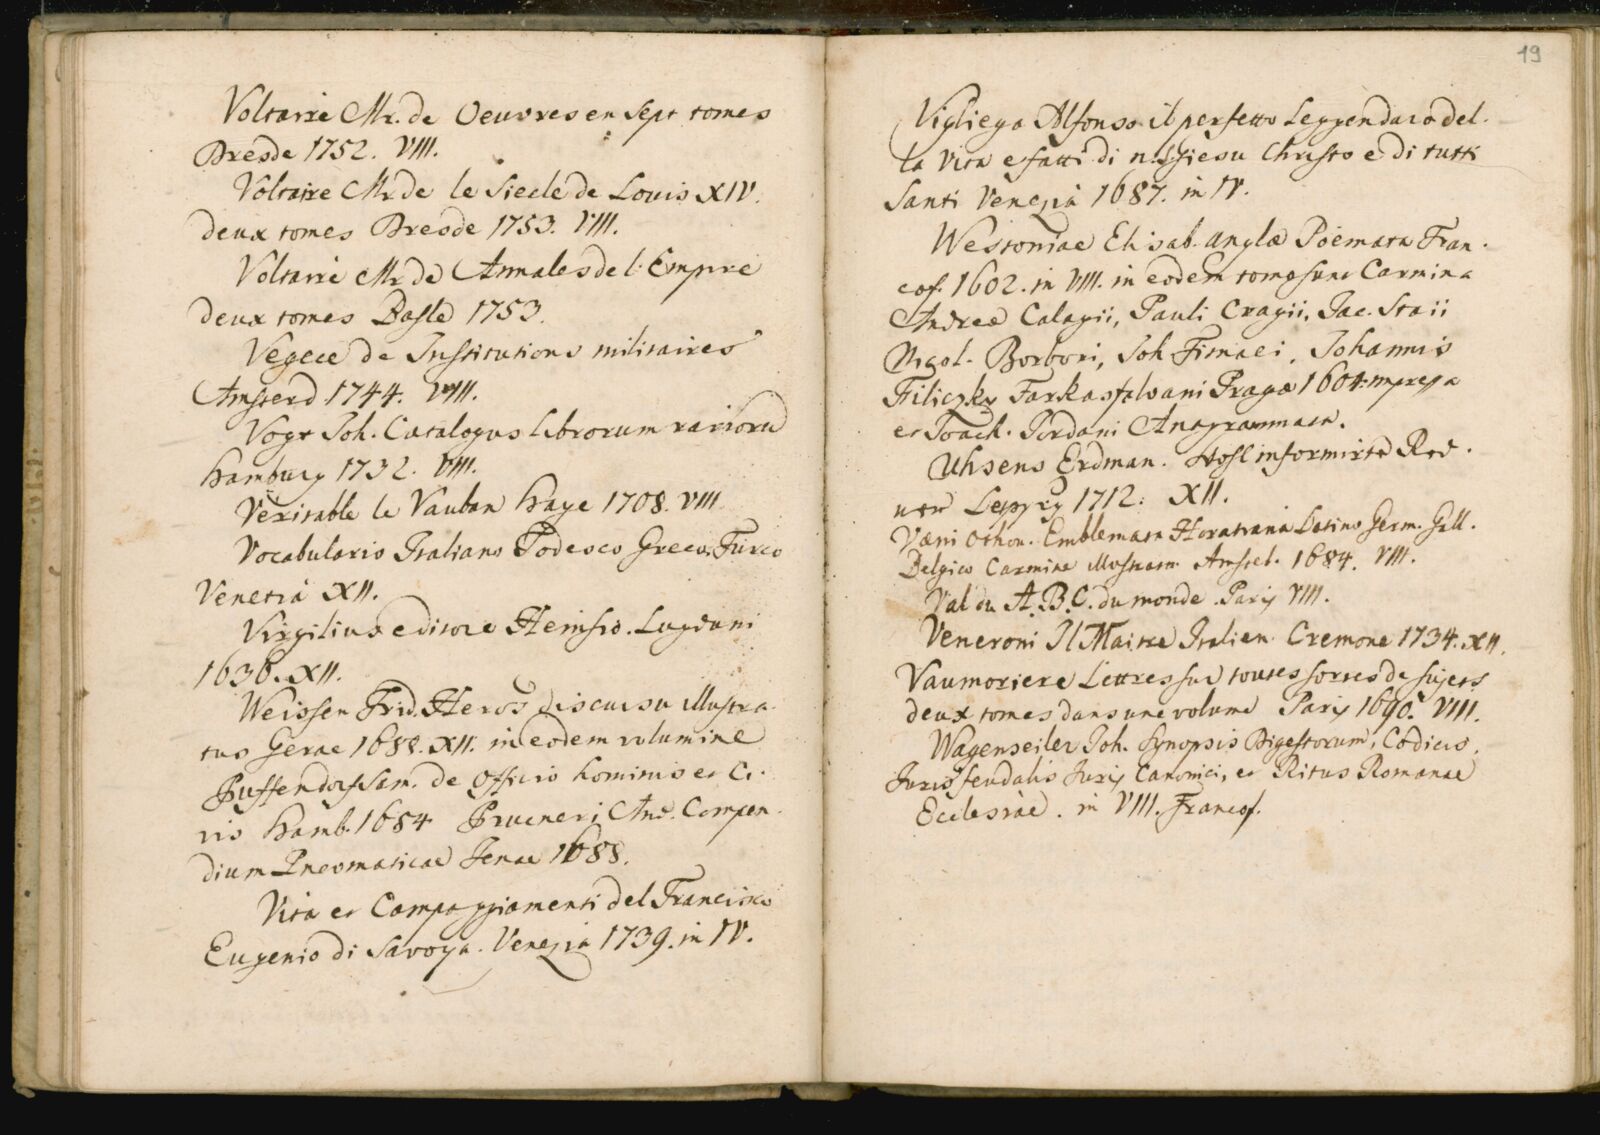 Voltaire Mr. de Oeuvres en sept tomes
Dresde 1752. VIII.
Voltaire Mr. de le Siecle de Louis XIV.
deux tomes Dresde 1753. VIII.
Voltaire Mr. de Annales de l'Empire
deux tomes Basle 1753.
Vegece de Institutions militaires
Amsterd 1744. VIII.
Vogt Joh. Catalogus librorum rarioru
Hamburg 1732. VIII.
Veritable le Vauban Haye 1708. VIII.
Vocabulario Italiano Todesco Greco, Turco
Venetia XII.
Virgilius editore Heinsio. Lugduni
1636. XII.
Weissen Frid. Heros discursu illustra
tus Gerae 1688. XII. in eodem volumine
Puffendorf Sam. de Officio hominis et Ci.
vis Hamb. 1684 Prueneri And. Compen.
dium Pneomaticae Jenae 1688.
Vita et Campaggiamenti del Francisco
Eugenio di Savoya. Venezia 1739. in IV.
19
Vigliega Alfonso il perfetto Leggendaro del.
la Vita e fatti di n. S. Giesu Christo e di tutti
Santi Venezia 1687. in IV.
Westoniae Elisab. Anglae Poemata Fran.
cof. 1602. in VIII. in eodem tomo sunt Carmina
Andreae Calagii, Pauli Cragii, Jac. Staii
Nigol. Borboni, Joh Fimaei, Johannis
Filiczky Farkasfalvani Pragae 1604. impressa
et Joach. Jordani Anagrammata.
Uhsens Erdman. Wohl informirte Red.
ner Leipzig 1712. XII.
Vaeni Othon. Emblemata Horatiana Latino Germ. Gall.
Belgico Carmine illustrata Amstel. 1684. VIII.
Val du A.B.C. du monde. Paris VIII.
Veneroni Il Maitre Italien Cremone 1734. XII.
Vaumoriere Lettres sur toutes sortes de sujets
deux tomes dans une volume Paris 1690. VIII.
Wagenseiler Joh. Synopsis Digestorum, Codicis,
Juris feudalis Juris Canonici, et Ritus Romanae
Ecclesiae. in VIII. Francof.